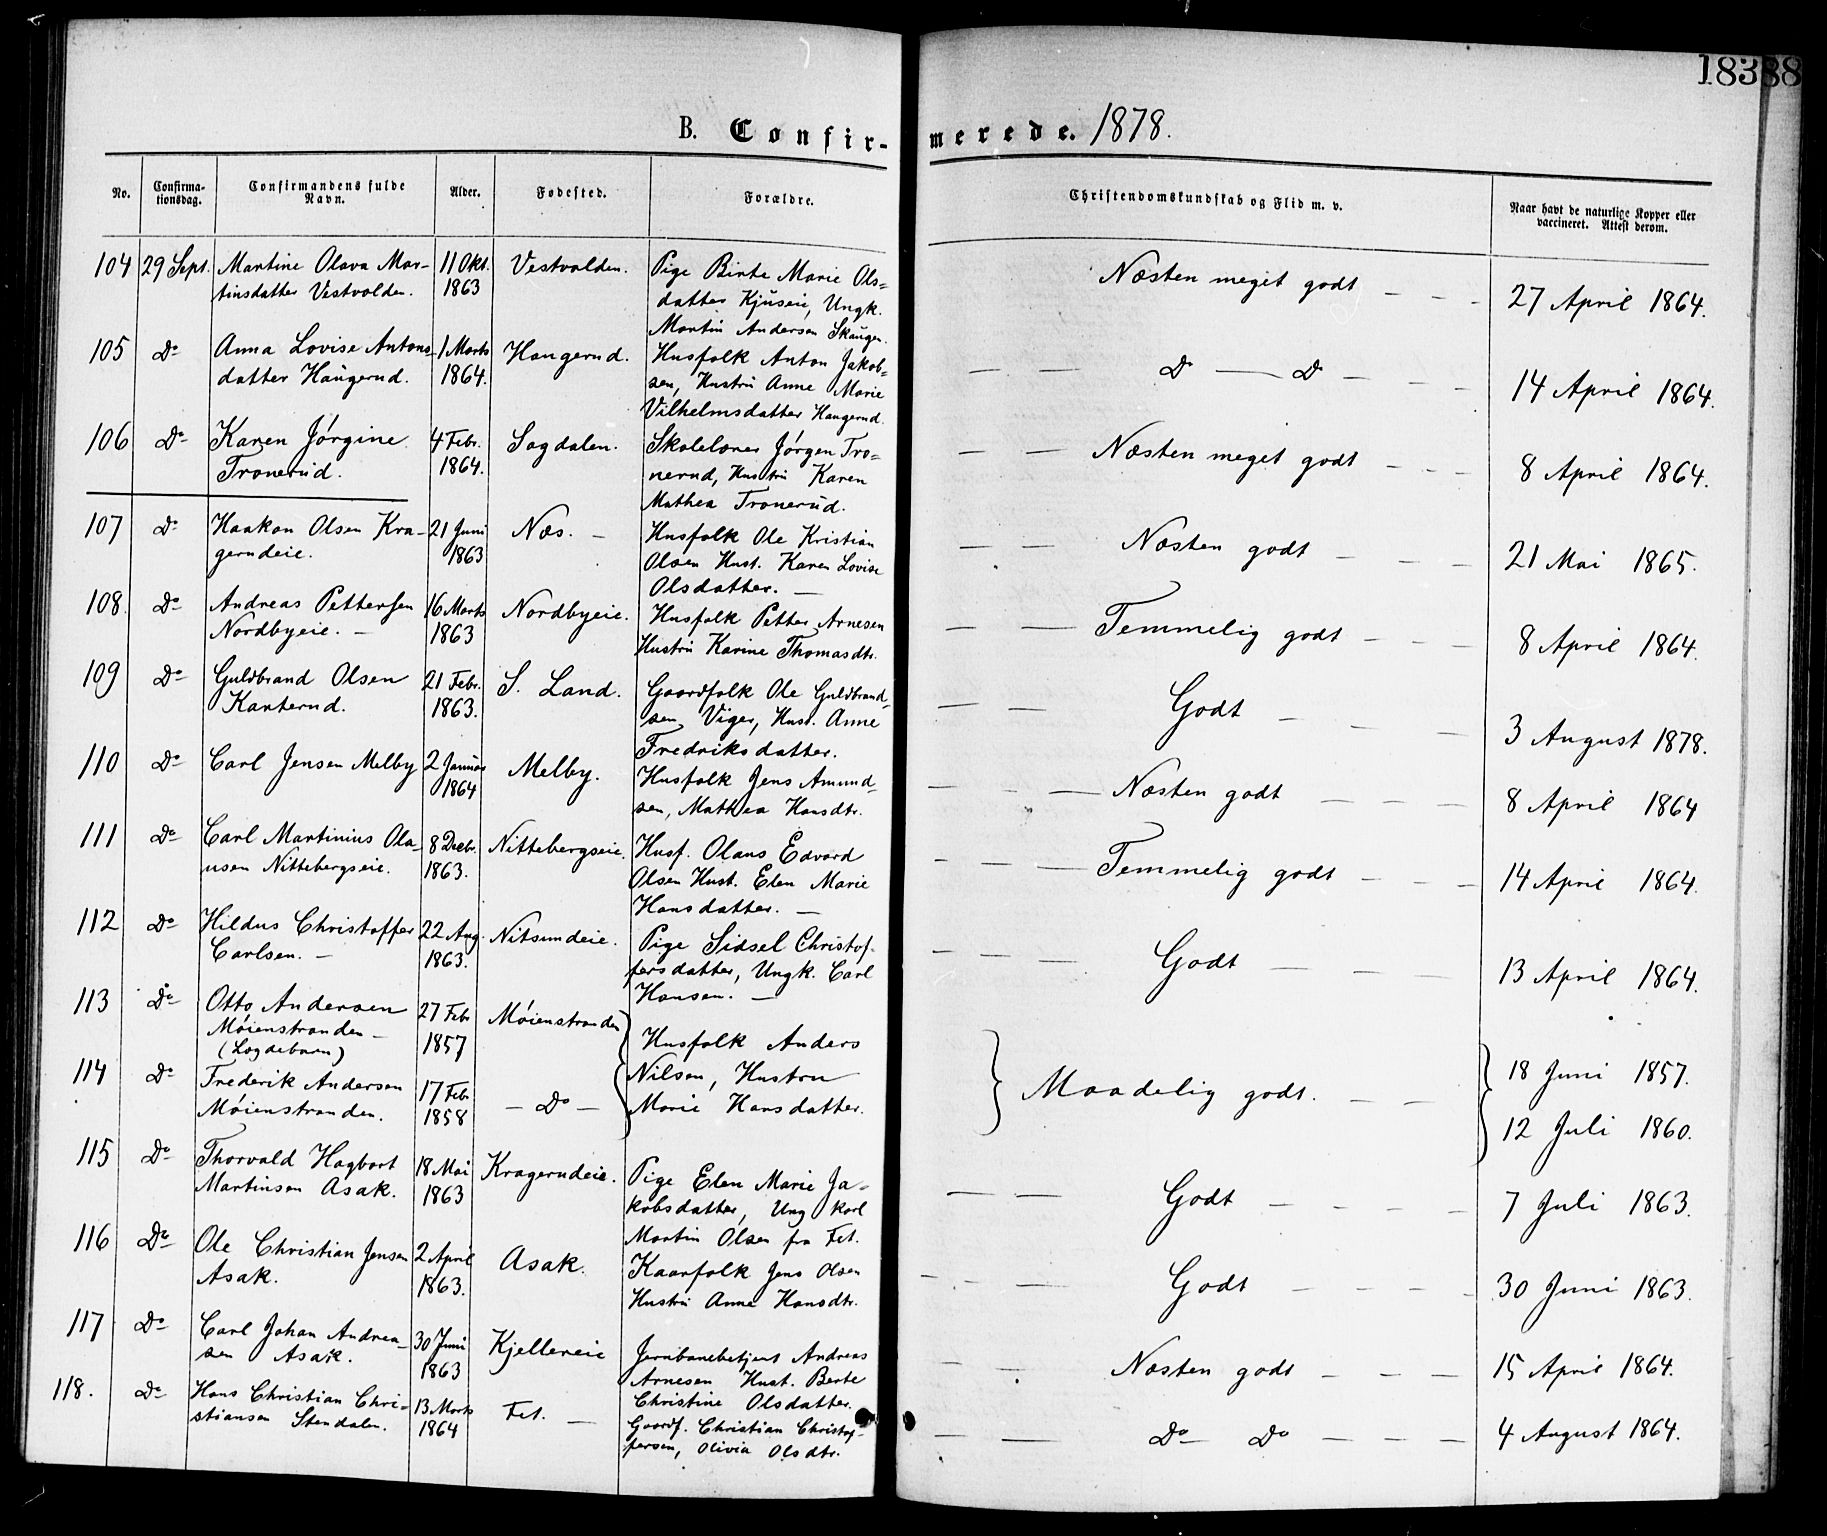 183 88
B. Confir-merede. 1878.
No. Confirma-tionsdag. Confirmandens fulde Navn. Alder. Fødested. Forældre. Christendomskundskab og Flid m. v. Naar havt de naturlige Kopper eller vaccineret. Attest derom.
104 29 Sept. Martine Olava Mar- 11 Okt. Vestvolden. Pige Birte Marie Ols= Næsten meget godt — — — 27 April 1864.
tinsdatter Vestvolden. 1863 datter Kjuseie, Ungk.
Martin Andersen Skaugen.
105 Do Anna Lovise Antons- 1 Marts Haugerud. Husfolk Anton Jakob= — — Do — Do — — — 14 April 1864.
datter Haugerud. 1864. sen, Hustru Anne Marie
Vilhelmsdatter Haugerud.
106 Do Karen Jørgine 4 Febr. Sagdalen. Skolelærer Jørgen Tro= — — Næsten meget godt — — — 8 April 1864.
Tronerud. 1864. nerud, Hustru Karen
Mathea Tronerud.
107 Do Haakon Olsen Kra- 21 Juni Næs. — Husfolk Ole Kristian — — Næsten godt — — — 21 Mai 1865.
gerudeie. 1863 Olsen Hust. Karen Lovise
Olsdatter. —
108. Do Andreas Pettersen 16 Marts Nordbyeie. Husfolk Petter Arnesen — — Temmelig godt — — — 8 April 1864.
Nordbyeie. — 1863 Hustru Karine Thomasdtr.
109 Do Guldbrand Olsen 21 Febr. S. Land. Gaardfolk Ole Guldbrand- — — Godt — — — 3 August 1878.
Kanterud. 1863. sen Viger, Hust. Anne
Fredriksdatter.
110 Do Carl Jensen Melby 2 Januar Melby. Husfolk Jens Amund- — — — Næsten godt — — — 8 April 1864
1864 sen, Mathea Hansdtr.
111 Do Carl Martinius Ola- 8 Decbr. Nittebergseie. Husf. Olaus Edvard — — — Temmelig godt — — — 14 April 1864.
usen Nittebergseie. 1863. Olsen Hust. Elen Marie
Hansdatter. —
112 Do Hildus Christoffer 22 Aug. Nitsundeie. Pige Sidsel Christof- — — — Godt — — — 13 April 1864.
Carlsen. — 1863. fersdatter, Ungk. Carl
Hansen. —
113 Do Otto Andersen 27 Febr Møienstranden Husfolk Anders Maadelig godt. — — 18 Juni 1857.
Møienstranden — 1857
(Lægdebarn)
114 Do Frederik Andersen 17 Feb. — Do — Nilsen, Hustru 12 Juli 1860.
Møienstranden. 1858 Marie Hansdatter.
115 Do Thorvald Hagbart 18 Mai Kragerudeie. Pige Elen Marie Ja= — — Godt — — — — 7 Juli 1863.
Martinsen Asak. 1863 kobsdatter, Ung karl
Martin Olsen fra Fet.
116 Do Ole Christian Jensen 2 April Asak. Kaarfolk Jens Olsen — — — Godt — — — — 30 Juni 1863.
Asak. 1863. Hustru Anne Hansdtr.
117 Do Carl Johan Andrea- 30 Juni Kjellereie Jernbanebetjent Andreas — — Næsten godt — — — 15 April 1864.
sen Asak. 1863 Arnesen Hust. Berte
Christine Olsdatter.
118. Do Hans Christian Chri= 13 Marts Fet. — Gaardf. Christian Christof- — — Do Do — — — 4 August 1864.
stiansen Stendalen. 1864 fersen, Olivia Olsdtr.